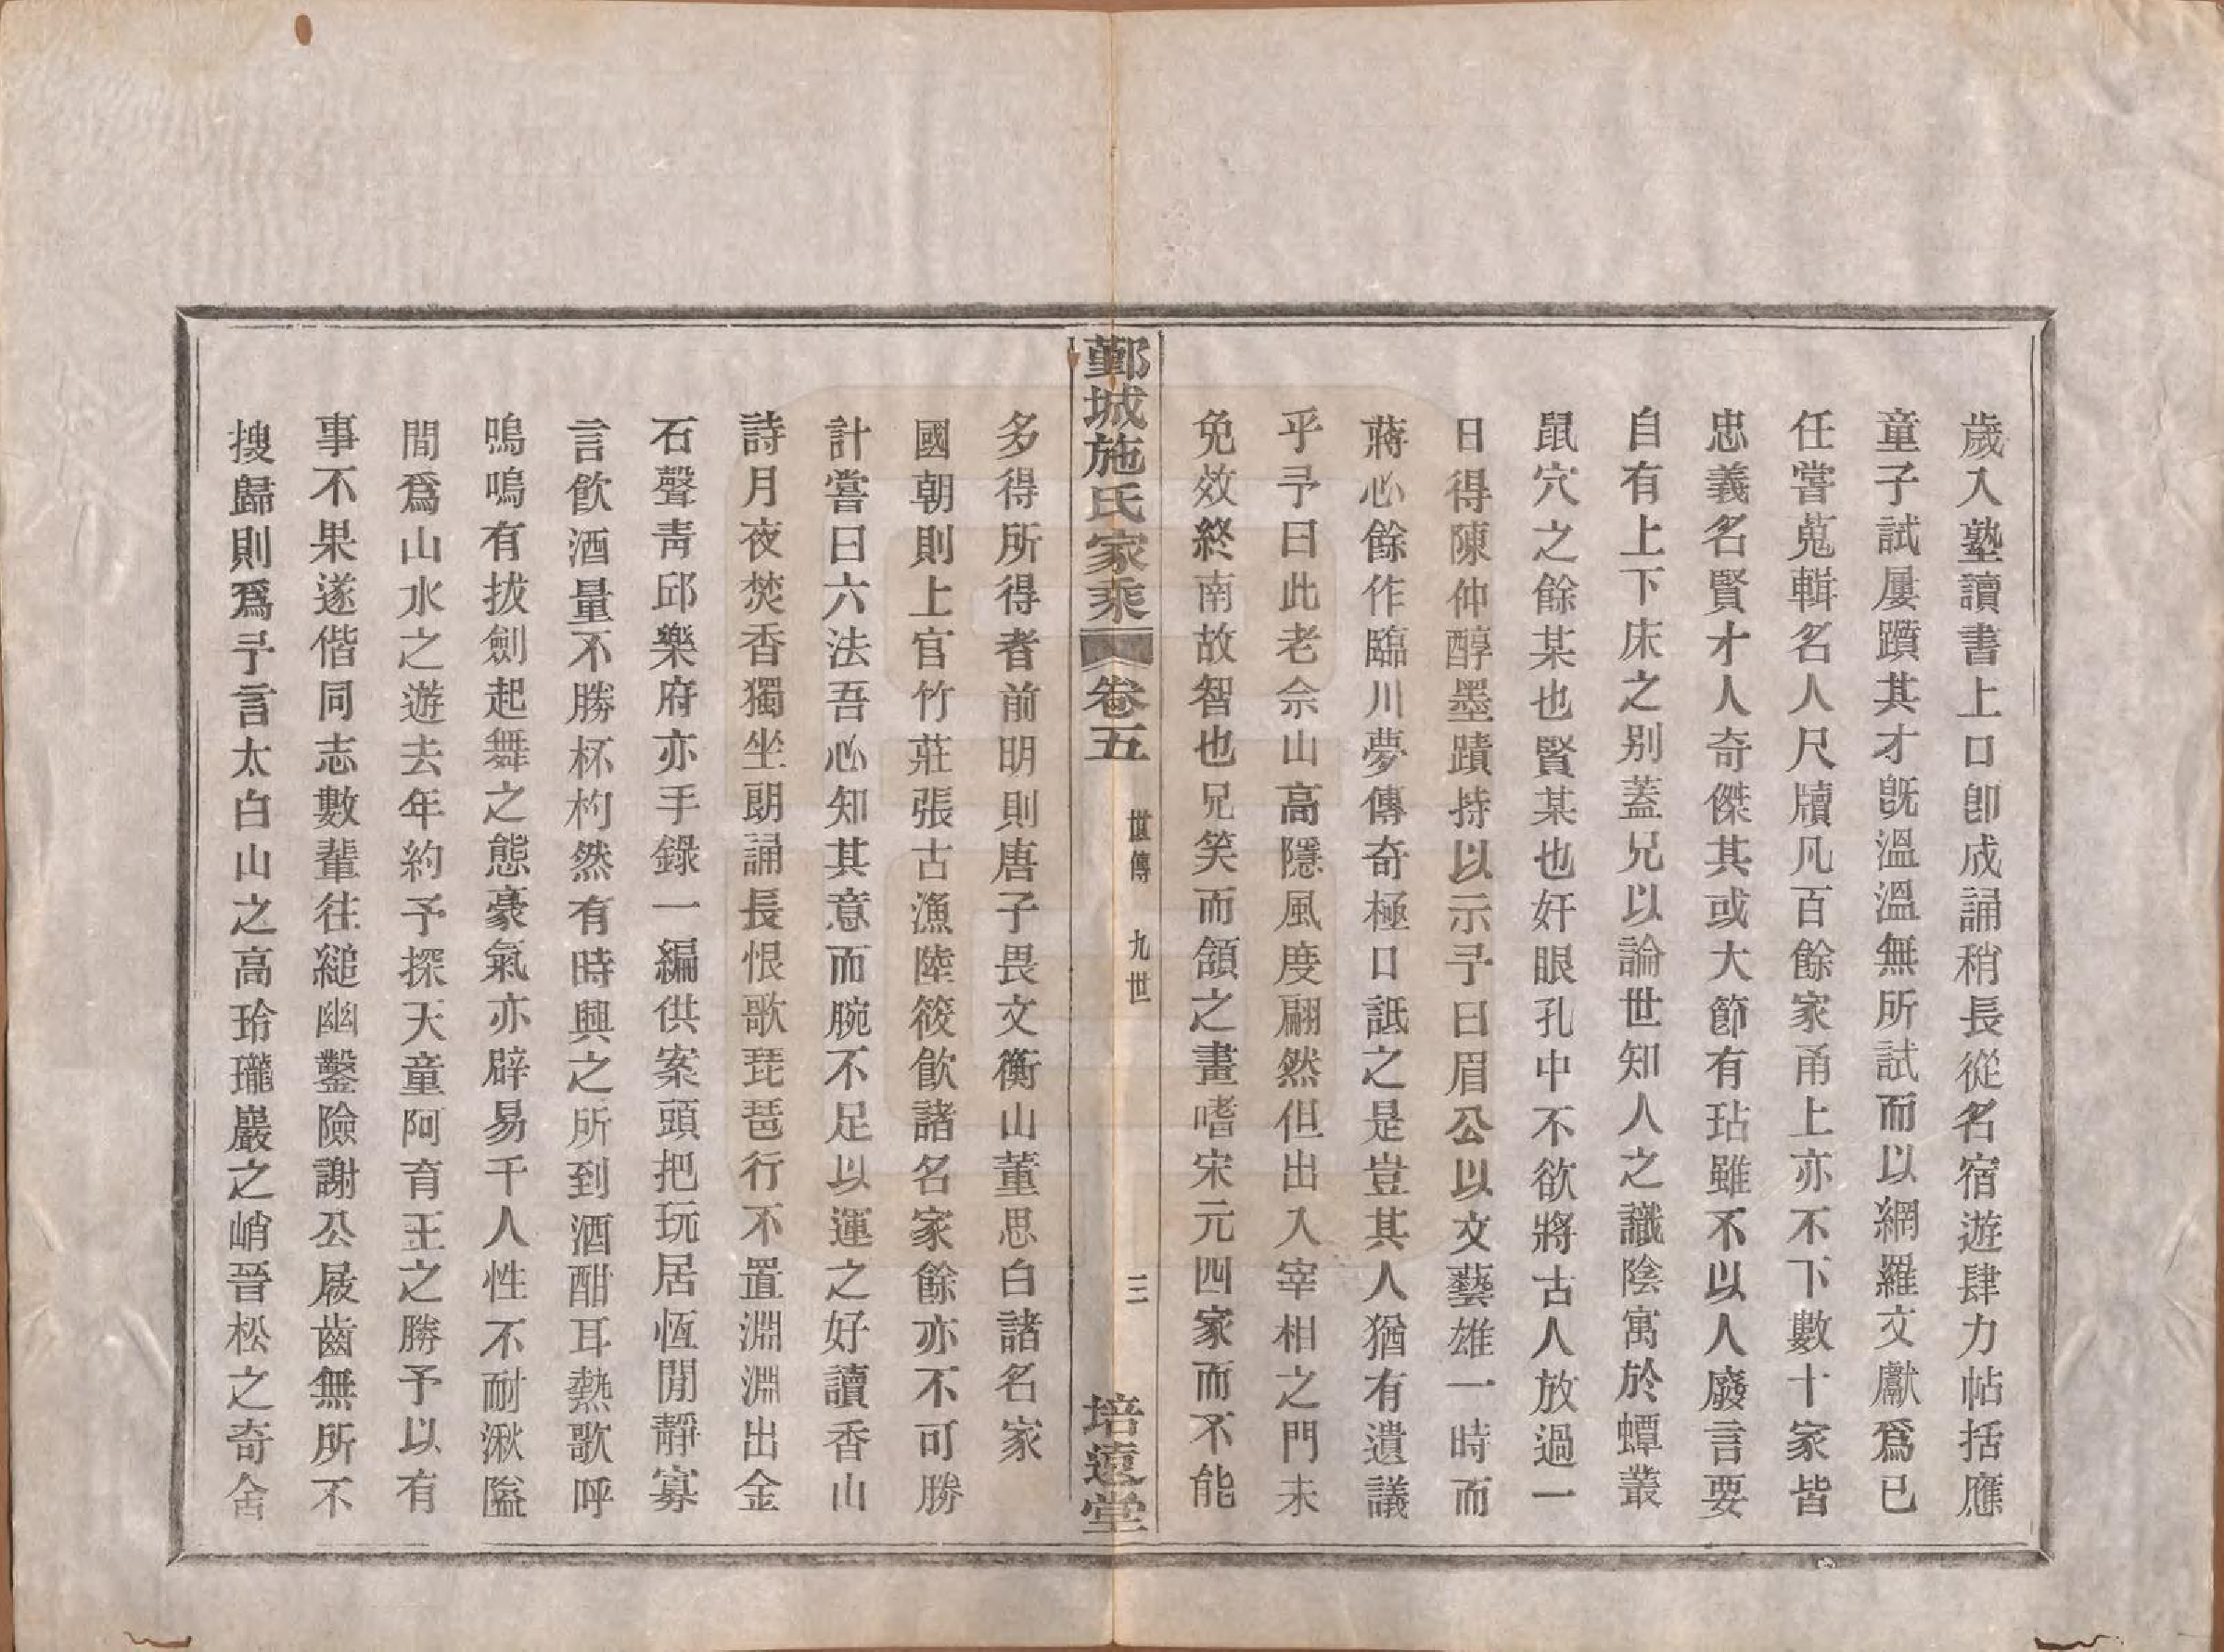 歲入塾讀書上口卽成誦稍長從名宿遊肆力帖括應
童子試屢躓其才旣溫溫無所試而以網羅文獻爲已
任嘗蒐輯名人尺牘凡百餘家甬上亦不下數十家皆
忠義名賢才人奇傑其或大節有玷雖不以人廢言要
自有上下床之别蓋兄以論世知人之識陰寓於蟫叢
鼠穴之餘某也賢某也奸眼孔中不欲將古人放過一
日得陳仲醇墨蹟持以示予曰眉公以文藝雄一時而
蔣心餘作臨川夢傳奇極口詆之是豈其人猶有遺議
乎予曰此老佘山高隱風度翩然但出入宰相之門未
免效終南故智也兄笑而頷之畫嗜宋元四家而不能
鄞城施氏家乘 卷五 世傳 九世 三 培遠堂
多得所得者前明則唐子畏文衡山董思白諸名家
國朝則上官竹莊張古漁陸筱飮諸名家餘亦不可勝
計嘗曰六法吾心知其意而腕不足以運之好讀香山
詩月夜焚香獨坐朗誦長恨歌琵琶行不置淵淵出金
石聲靑邱樂府亦手錄一編供案頭把玩居恆閒靜寡
言飮酒量不勝杯杓然有時興之所到酒酣耳熱歌呼
嗚嗚有拔劍起舞之態豪氣亦辟易千人性不耐湫隘
間爲山水之遊去年約予探天童阿育王之勝予以有
事不果遂偕同志數輩往縋幽鑿險謝公屐齒無所不
搜歸則爲予言太白山之高玲瓏巖之峭晉松之奇舍